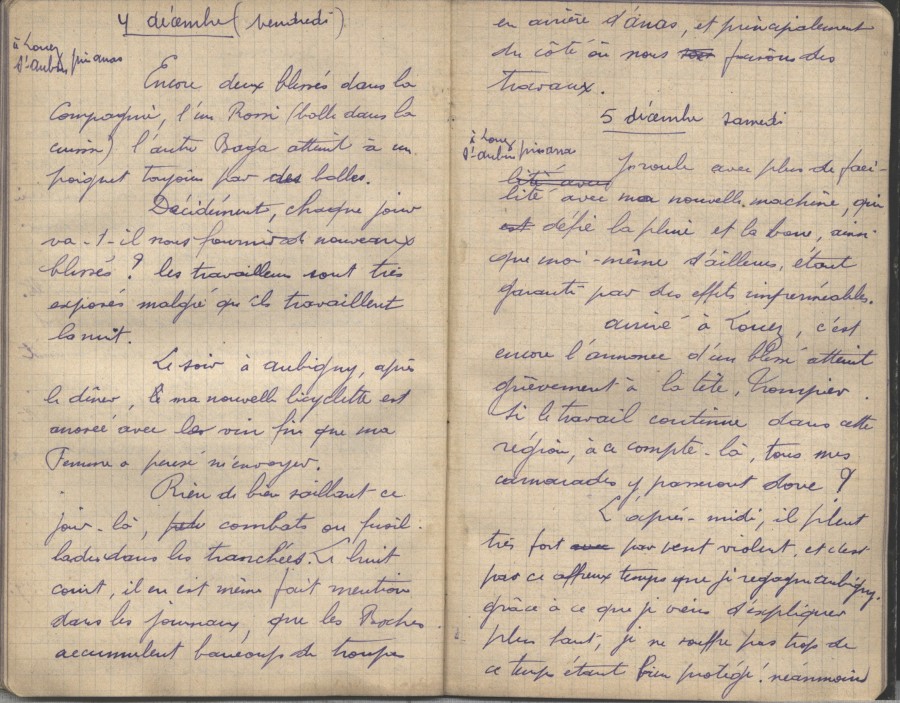 4 décembre (vendredi)
à Louez
St-Aubin près Anas
Encore deux blessés dans la
Compagnie, l'un Rossi (balle dans la
cuisse) l'autre Baga atteint à un
poignet toujours par des balles.
Décidément, chaque jour
va-t-il nous fournir de nouveaux
blessés? les travailleurs sont très
exposés malgré qu'ils travaillent
la nuit.
Le soir à Aubigny, après
le dîner, ma nouvelle bicyclette est
arrosée avec le vin fin que ma
Femme a pensé m'envoyer.
Rien de bien saillant ce
jour-là, combats ou fusil-
lades dans les tranchées. Le bruit
court, il en est même fait mention
dans les journaux, que les Boches
accumulent beaucoup de troupes
en arrière d'Anas, et principalement
du côté où nous faisons des
travaux.
5 décembre samedi
à Louez
St-Aubin près Anas
Je roule avec plus de faci-
lité avec
lité avec ma nouvelle machine, qui
est défie la pluie et la boue, ainsi
que moi-même d'ailleurs, étant
garanti par des effets imperméables.
Arrivé à Louez, c'est
encore l'annonce d'un blessé atteint
grièvement à la tête, Trompier.
Si le travail continue dans cette
région, à ce compte-là, tous mes
camarades y passeront donc?
L'après-midi, il pleut
très fort avec par vent violent, et c'est
par ce affreux temps que je regagne Aubigny.
grâce à ce que je viens d'expliquer
plus haut, je ne souffre pas trop de
ce temps étant bien protégé! néanmoins